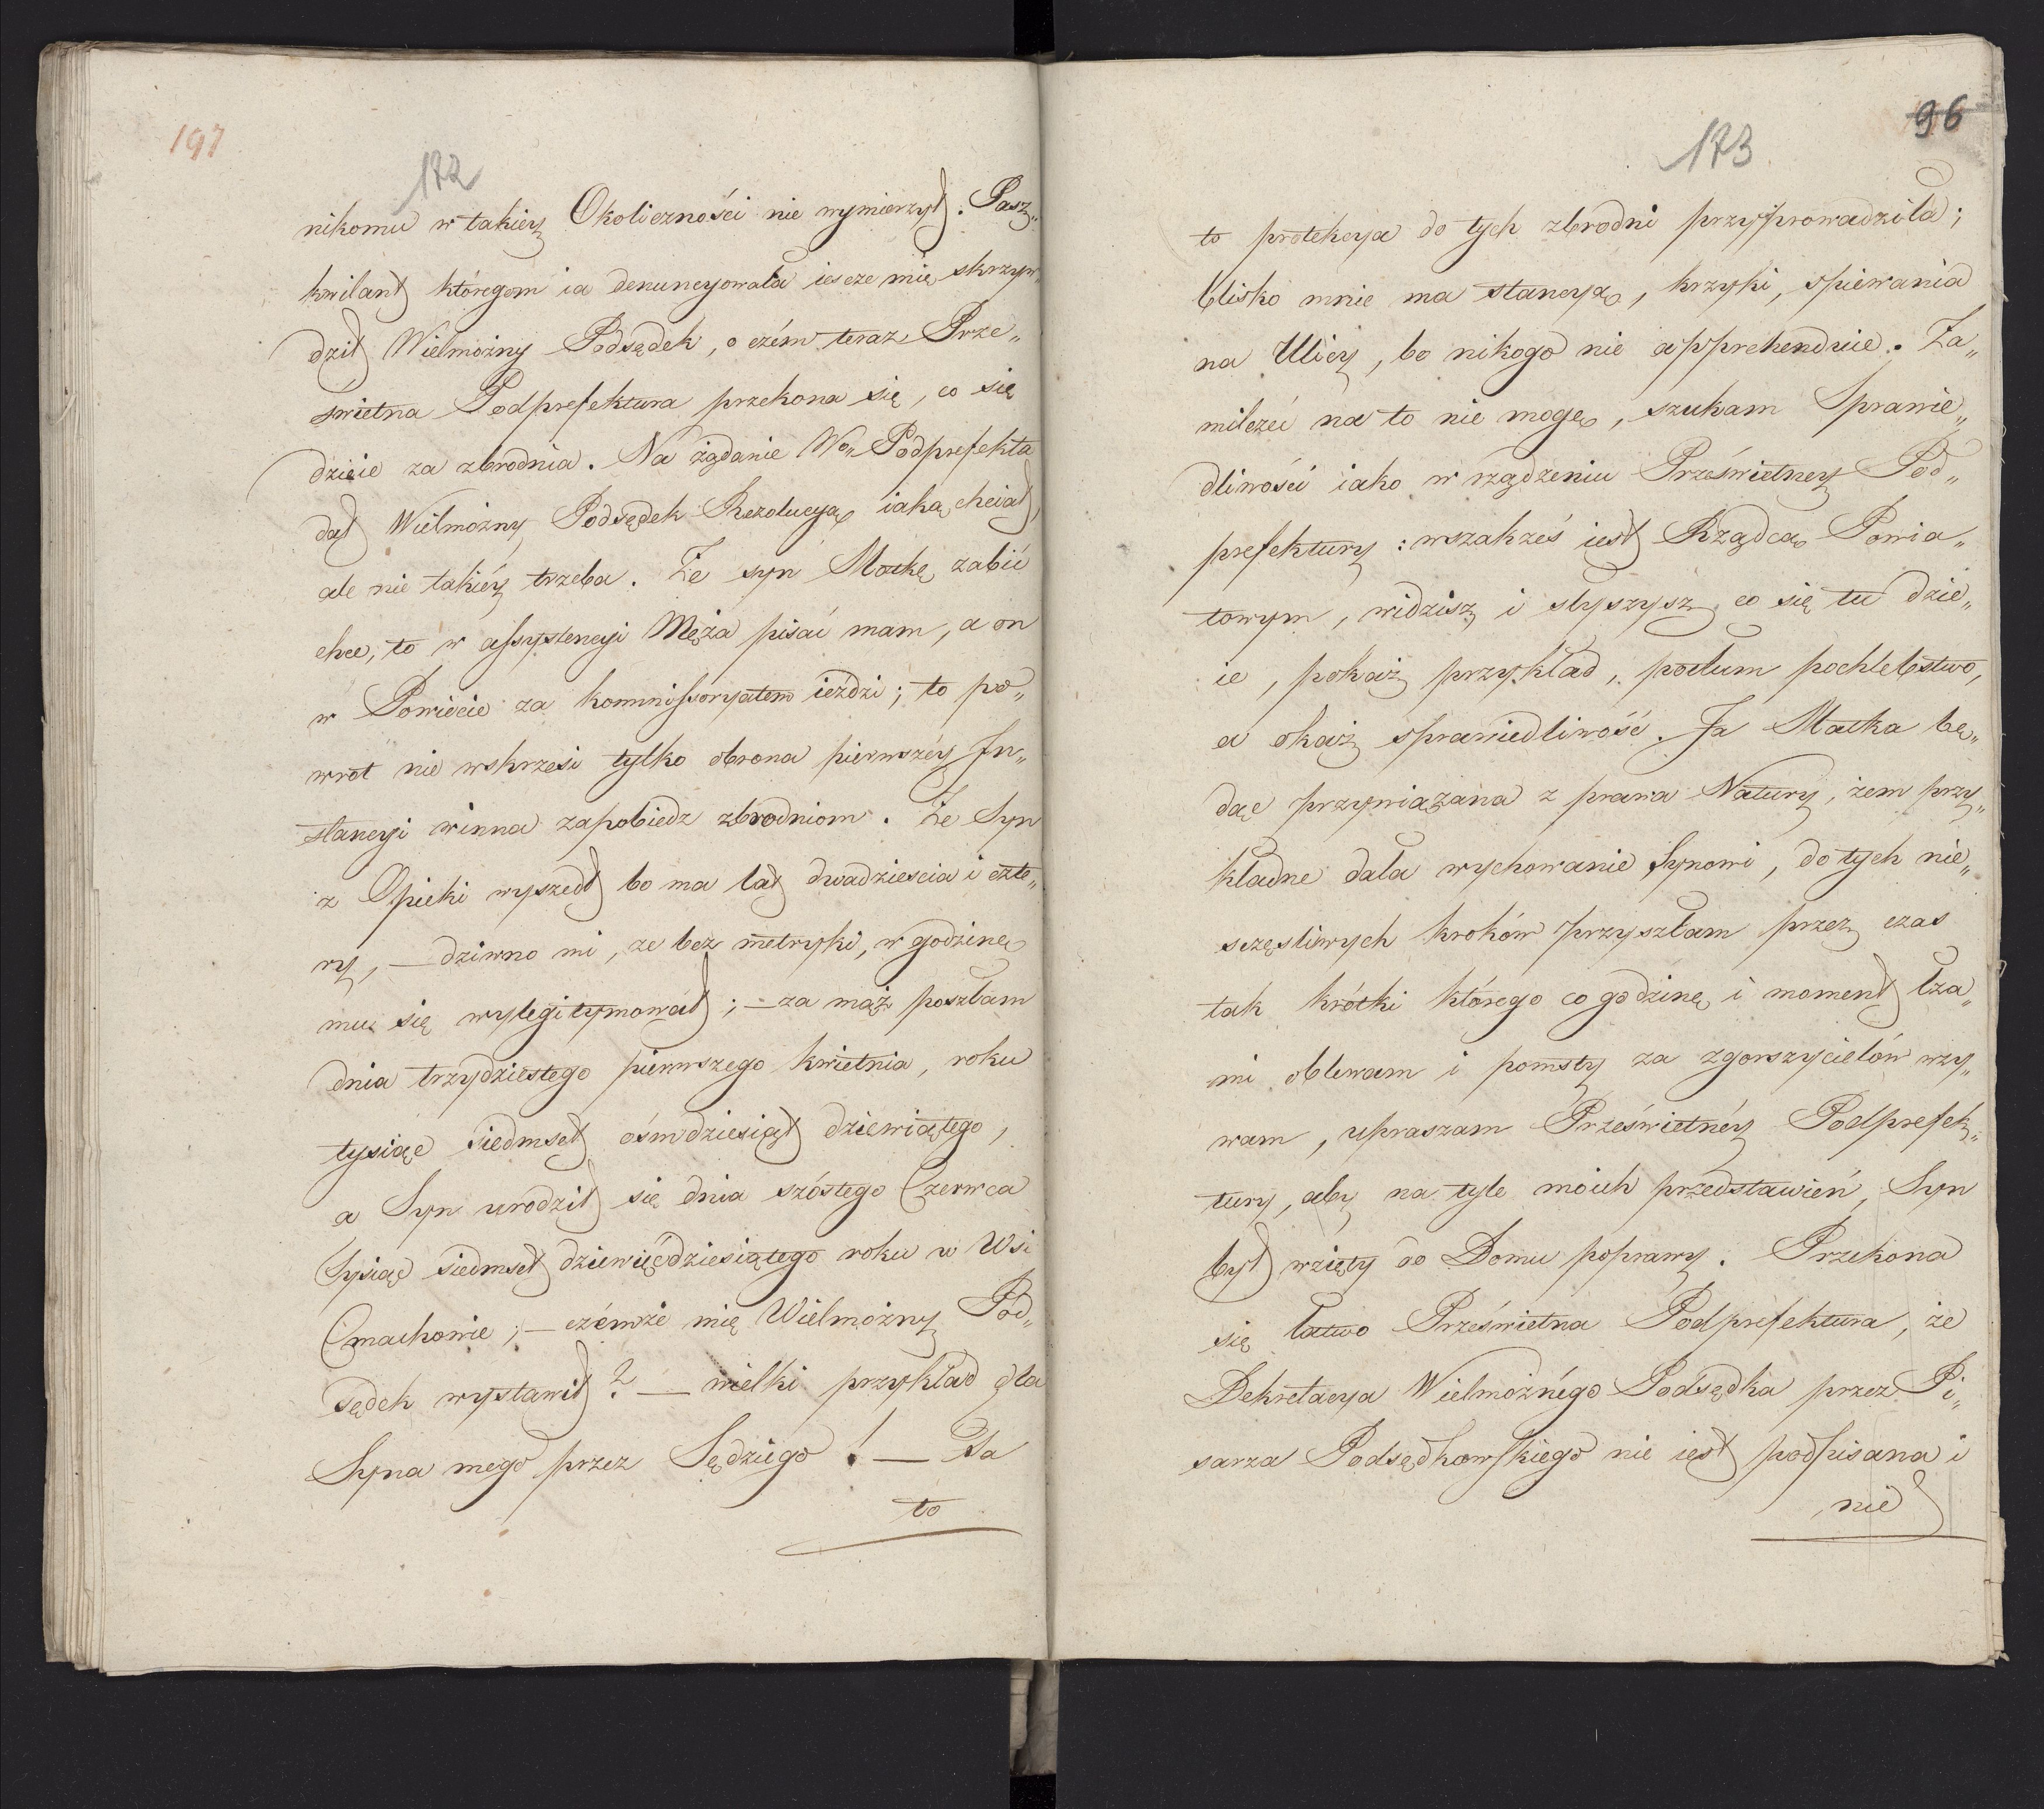 197
172
nikomu w takiey Okoliczności nie wymierzył. Pasz„
kwilant któregom ia denuncyowała ieszcze mię skrzyw„
dził Wielmożny Podsędek, o czém teraz Prze„
świetna Podprefektura przekona się, co się
dzieie za zbrodnia. Na żądanie Wo„ Podprefekta
dał Wielmożny Podsędek Rezolucyą iaką chciał,
ale nie takiéy trzeba. Ze syn Matkę zabić
chce, to w assystencyi Męża pisać mam, a on
w Powiecie za kommissoryatem ieździ; to po„
wrót nie wskrzesi tylko obrona pierwszéy In„
stancyi winna zapobiedz zbrodniom. Ze Syn
z Opieki wyszedł bo ma lat dwadziescia i czte„
ry, — dziwno mi, ze bez metryki, w godzinę
mu się wylegitymował; — za mąż poszłam
dnia trzydziestego pierwszego kwietnia, roku
tysiąc siedmset ośmdziesiąt dziewiątego,
a Syn urodził się dnia szóstego Czerwca
tysiąc siedmset dziewięćdziesiątego roku w Wsi
Cmachowie; — czémże mię Wielmożny Pod„
sędek wystawił? — wielki przykład dla
Syna mego przez Sędziego! — Ta
to
96
173
to protekcya do tych zbrodni przyprowadziła;
blisko mnie ma stancyą, krzyki, spiewania
na Ulicy, bo nikogo nie apprehenduie. Za„
milczéć na to nie mogę, szukam Sprawie„
dliwości iako w rządzeniu Prześwietney Pod„
prefektury: wszakześ iest Rządcą Powia„
towym, widzisz i słyszysz co się tu dzie„
ie, pokaż przykład, potłum pochlebstwo,
a okaż sprawiedliwość. Ja Matka bę„
dąc przywiązana z prawa Natury, zem przy„
kładne dała wychowanie Synowi, do tych nie„
szczęśliwych kroków przyszłam przez czas
tak krótki którego co godzinę i moment łza„
mi oblewam i pomsty za zgorszycielów wzy„
wam, upraszam Prześwietnéy Podprefek„
tury, aby na tyle moich przedstawień, Syn
był wzięty do Domu poprawy. Przekona
się łatwo Prześwietna Podprefektura, ze
Dekretacya Wielmożnego Podsędka przez Pi„
sarza Podsędkowskiego nie iest podpisana i
nie